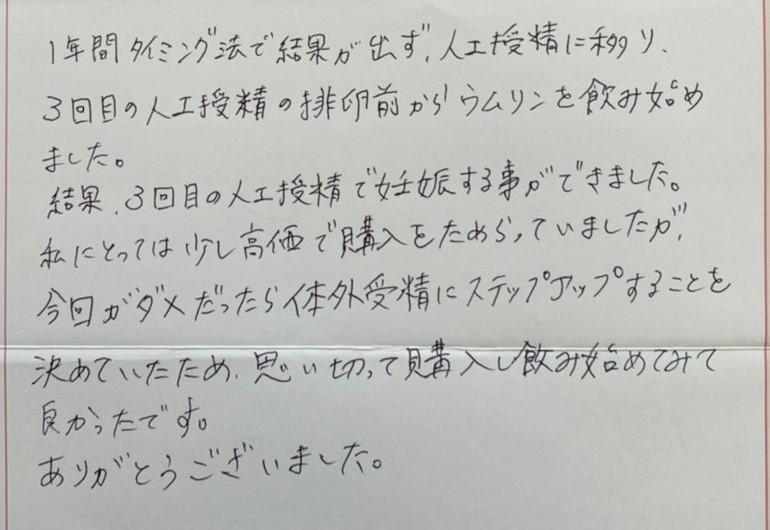 1年間タイミング法で結果が出ず、人工授精に移り、
3回目の人工授精の排卵前からウムリンを飲み始め
ました。
結果、3回目の人工授精で妊娠する事ができました。
私にとっては少し高価で購入をためらっていましたが、
今回がダメだったら体外受精にステップアップすることを
決めていたため、思い切って購入し飲み始めてみて
良かったです。
ありがとうございました。